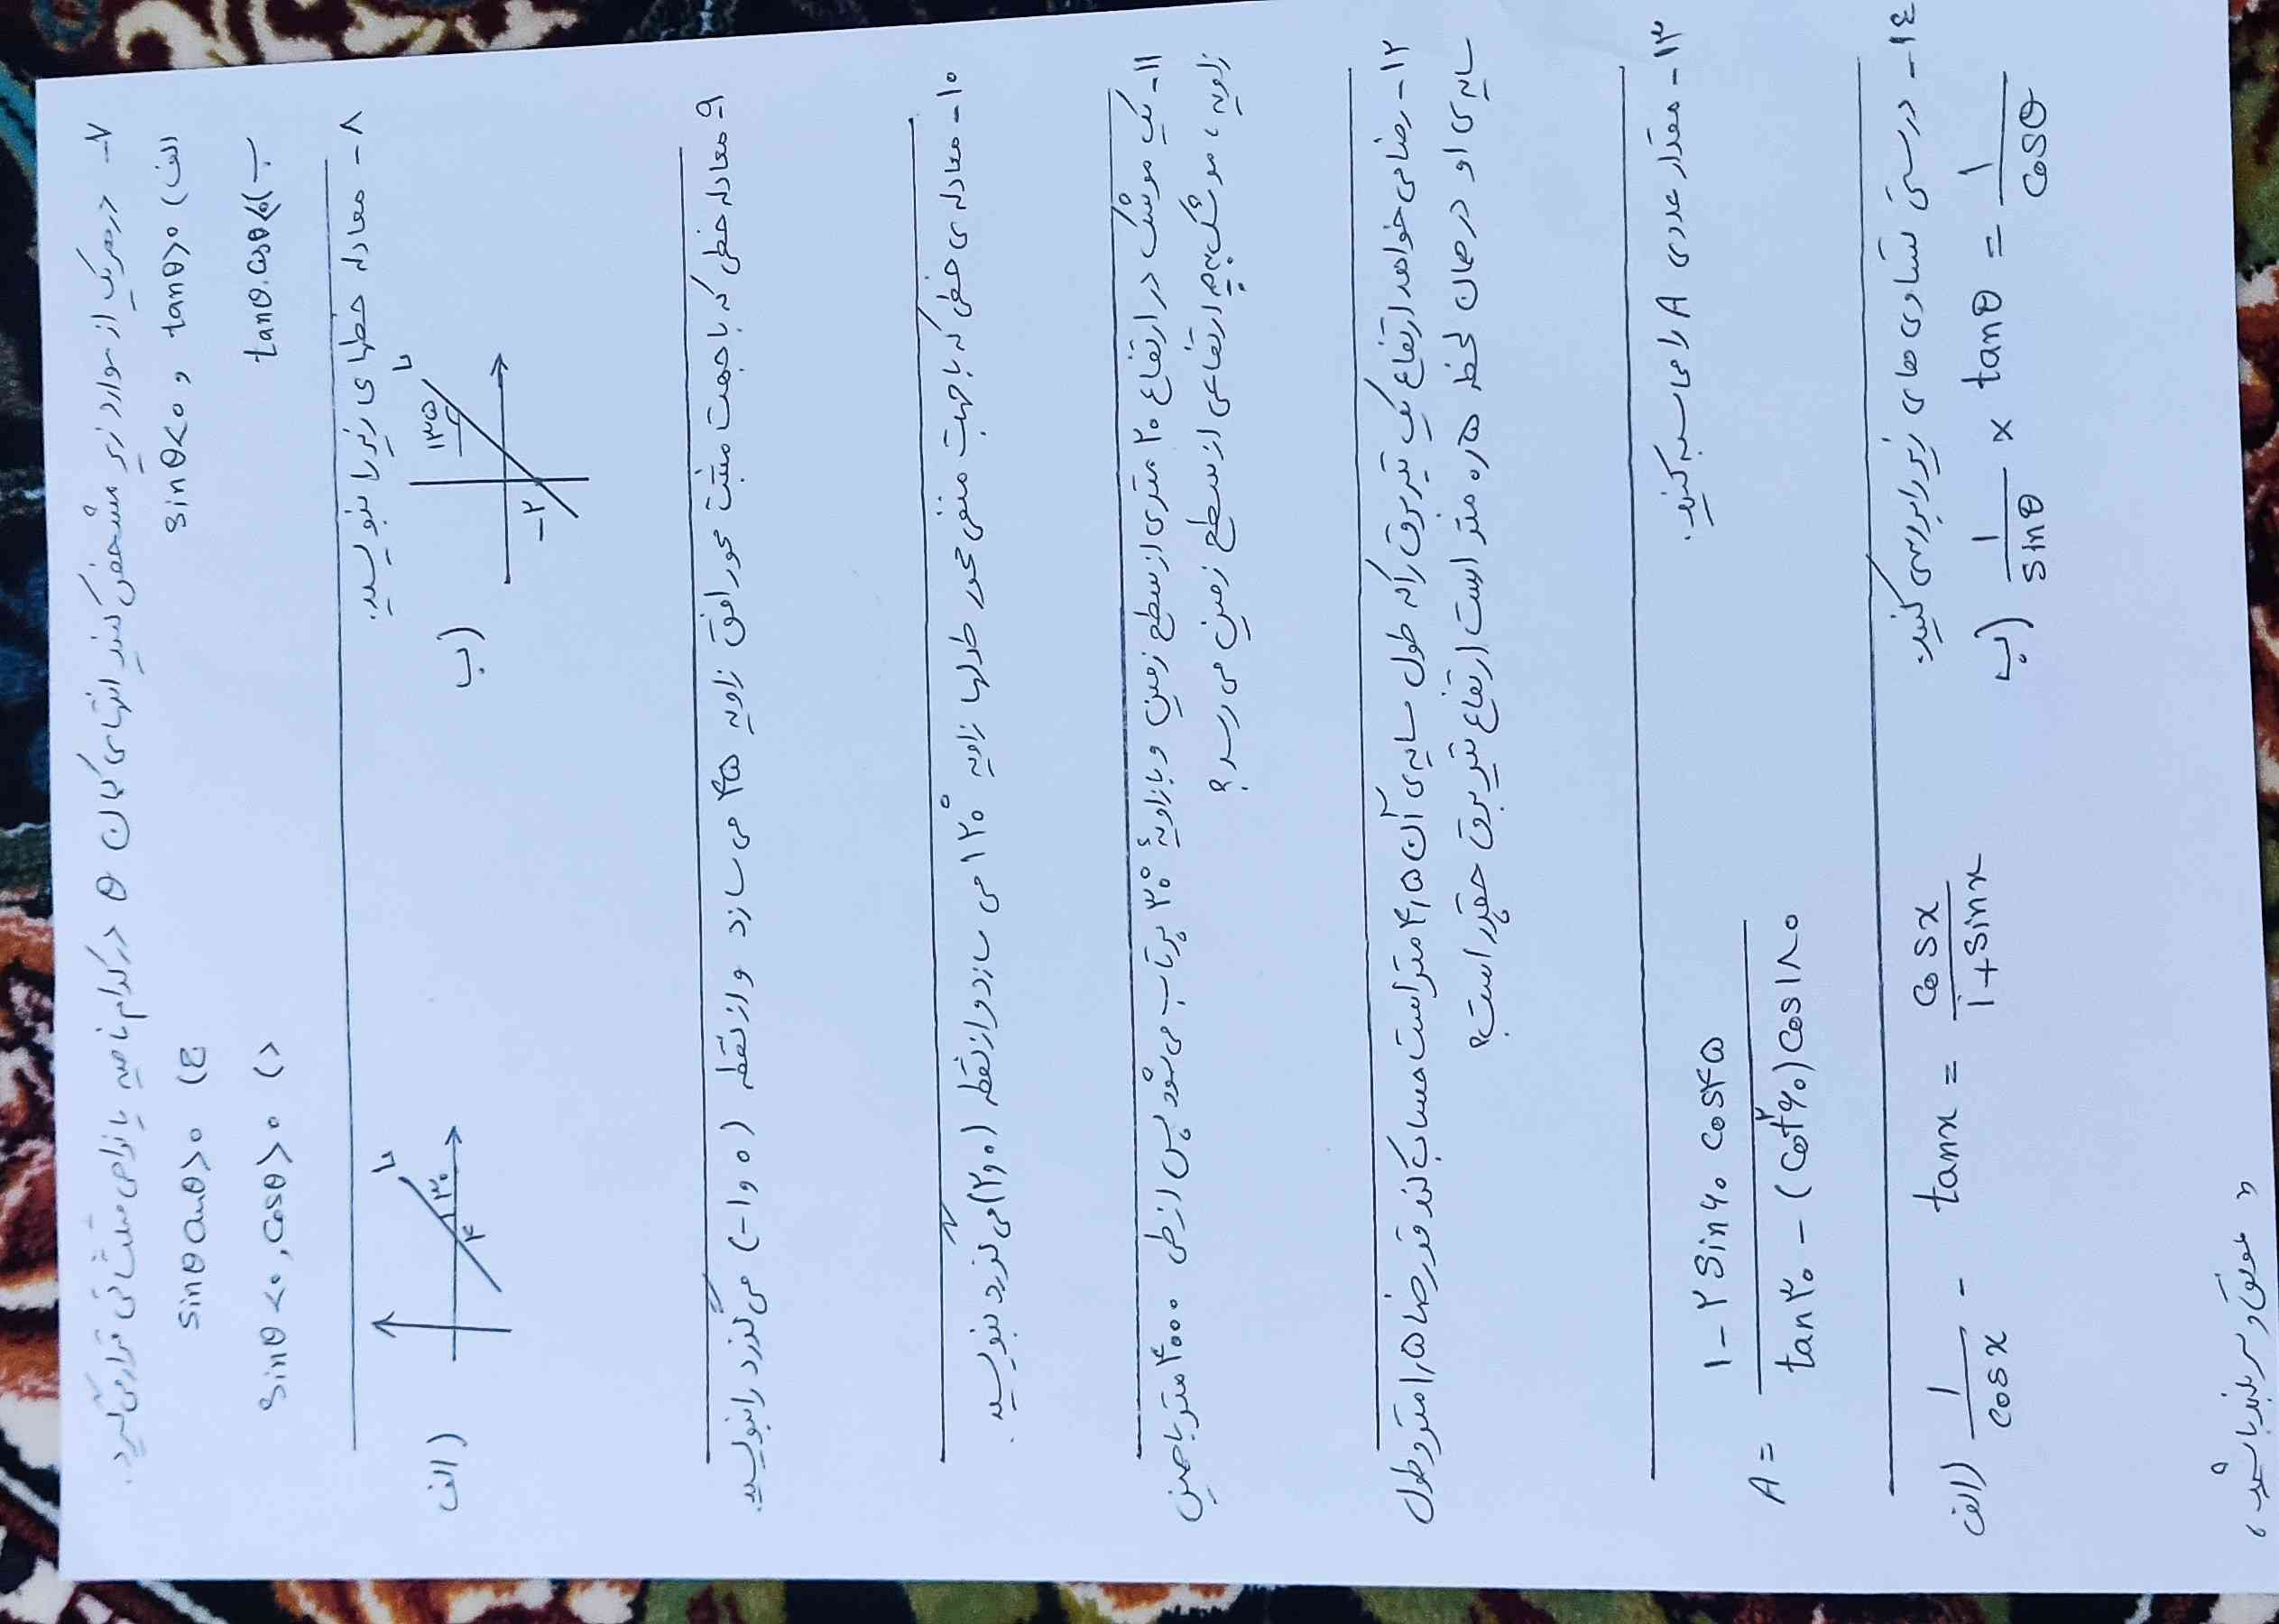 ۷- در هر یک از موارد زیر مشخص کنید انتهای کمان θ در کدام ناحیه یا نواحی مثلثاتی قرار می‌گیرد.
الف) sinθ<۰ , tanθ>۰
ج) sinθ cosθ>۰
ب) tanθ.cosθ<۰
د) sinθ<۰ , cosθ>۰
۸- معادله خطهای زیر را بنویسید.
الف) ۳۰ ۴
ب) ۱۳۵ -۲
۹- معادله خطی که با جهت مثبت محور افق زاویه ۴۵ می سازد و از نقطه (-۱ و ۵) می‌گذرد را بنویسید.
۱۰- معادله ی خطی که با جهت منفی محور طولها زاویه ۱۲۰° می سازد و از نقطه (۲ و ۵) می‌گذرد بنویسید.
۱۱- یک موشک در ارتفاع ۲۰ متری از سطح زمین و با زاویهٔ ۳۰° پرتاب می‌شود پس از طی ۴۰۰۰ متر با همین
زاویه، موشک به چه ارتفاعی از سطح زمین می رسد؟
۱۲- رضا می خواهد ارتفاع یک تیر برق را که طول سایه‌ی آن ۴٫۵ متر است حساب کند قد رضا ۱٫۵ متر و طول
سایه ی او در همان لحظه ۰٫۵ متر است ارتفاع تیر برق چقدر است؟
۱۳- مقدار عددی A را محاسبه کنید.
A = ۱ - ۲ Sin۶۰ cos۴۵ / tan۳۰ - (cot۲۶۰) cos۱۸۰
۱۴- درستی تساوی های زیر را بررسی کنید.
الف) 1/cosx - tanx = cosx/1+sinx
ب) 1/sinθ × tanθ = 1/cosθ
«موفق و سر بلند باشید»